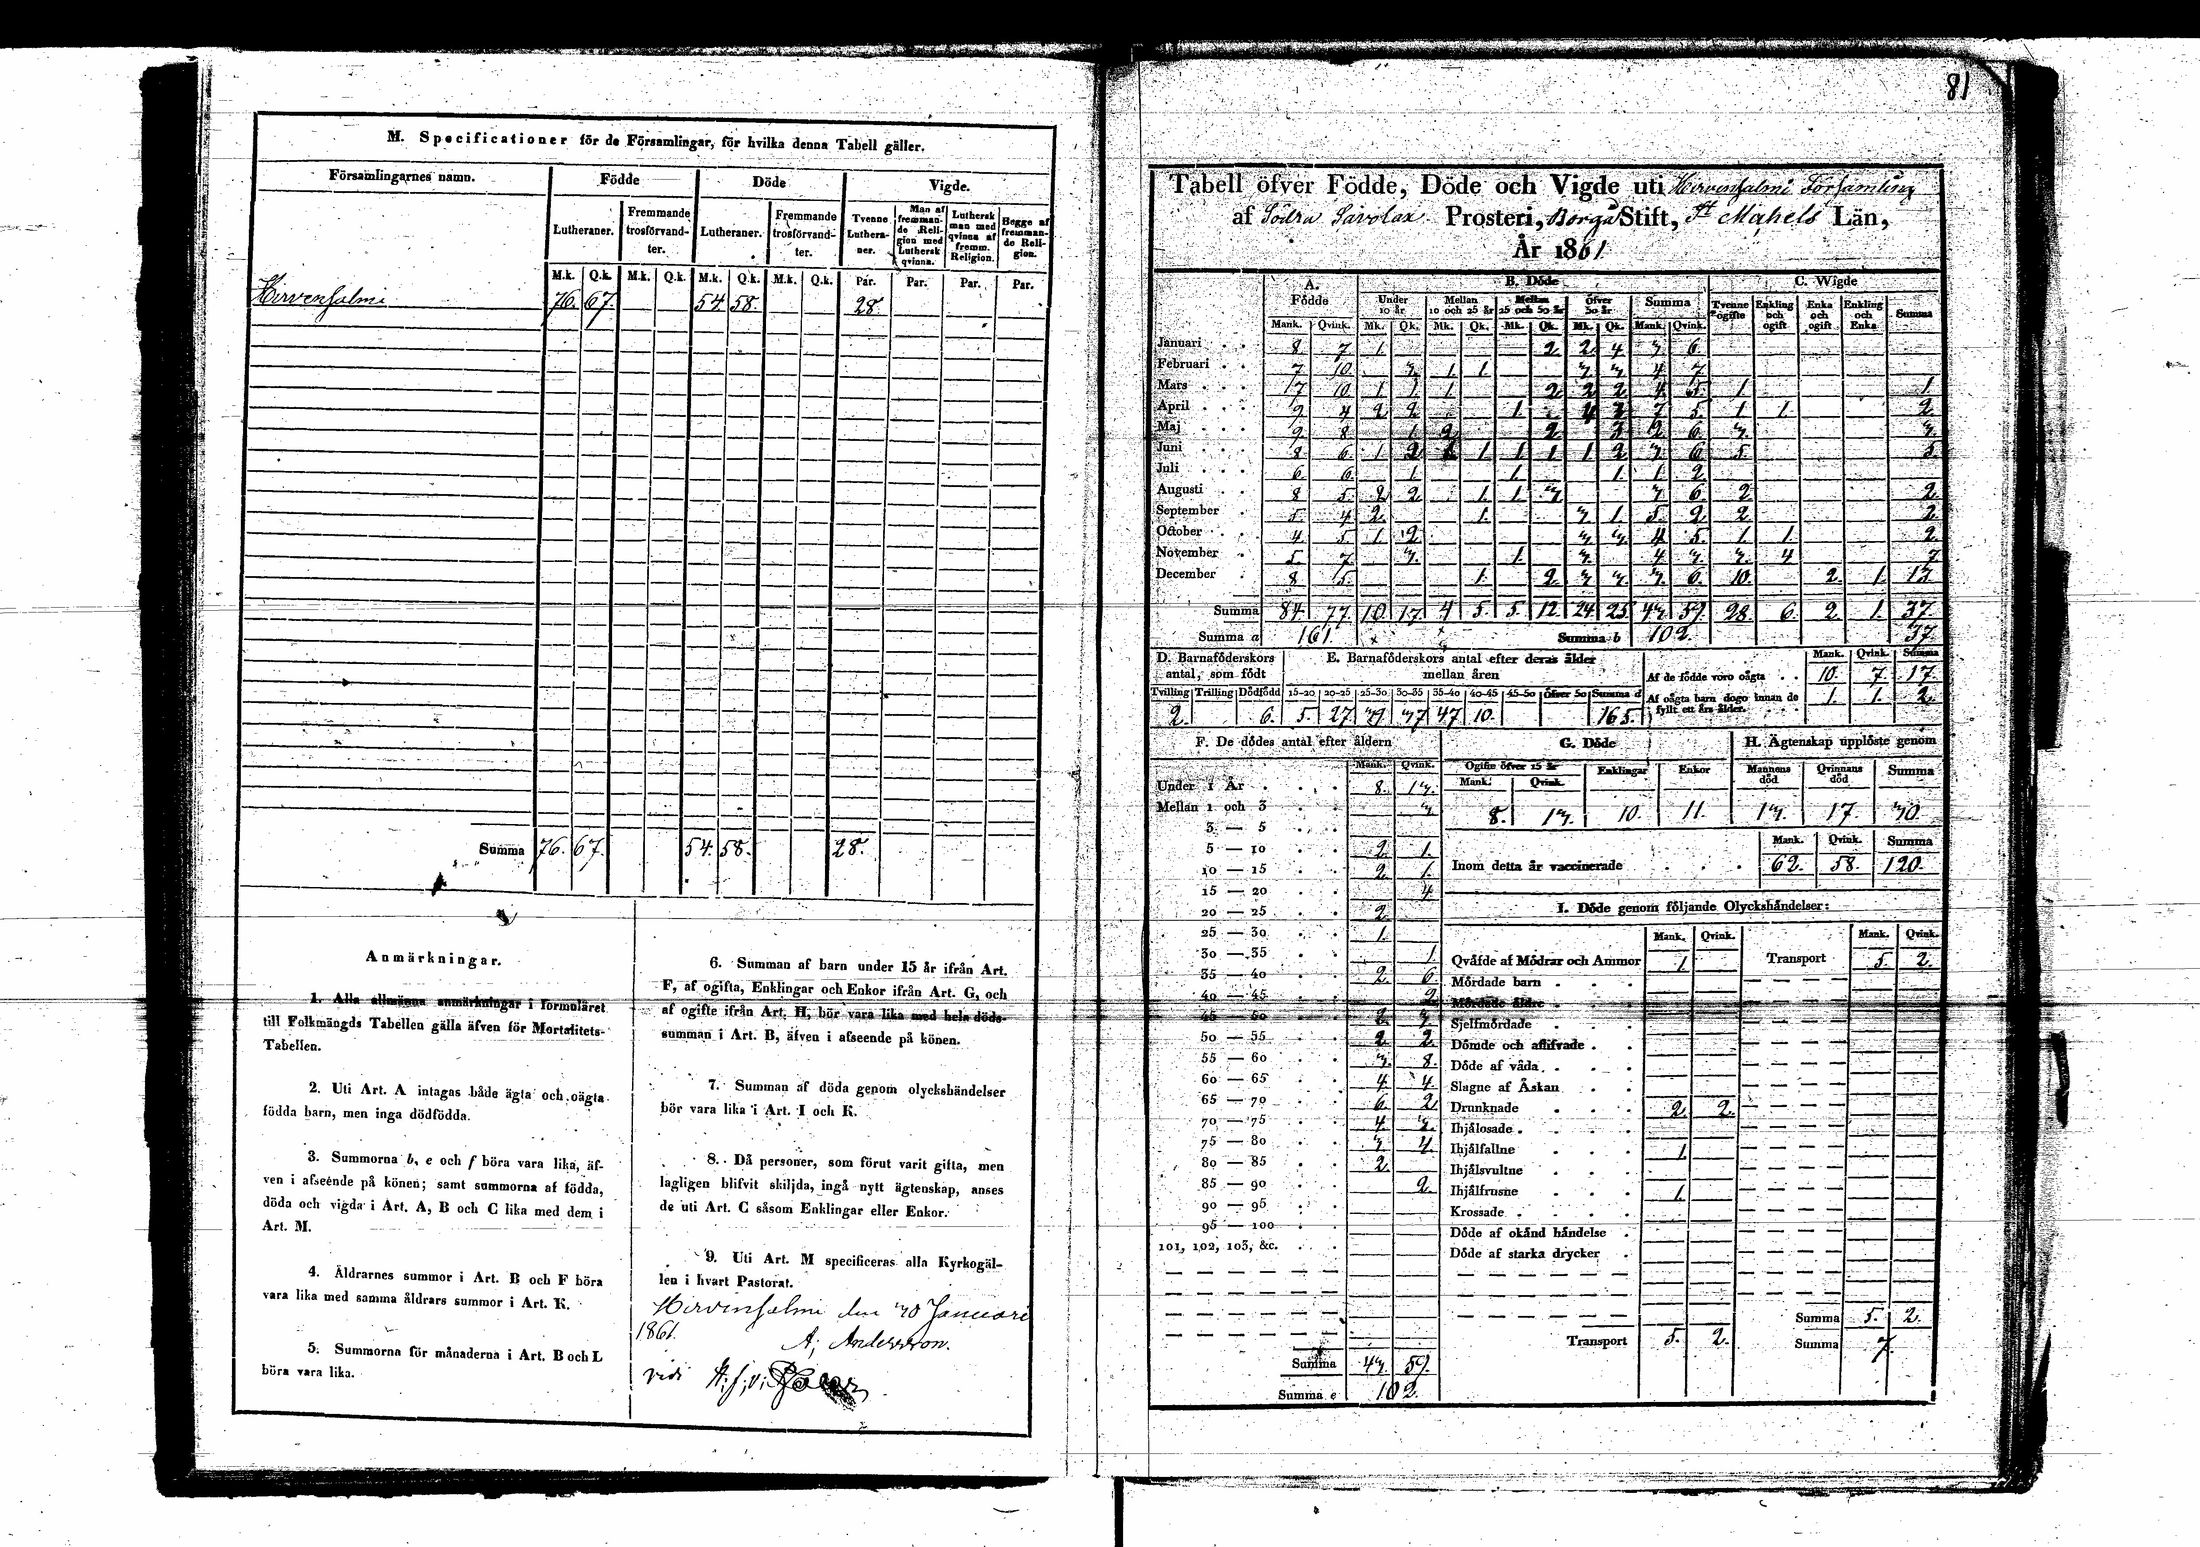 M. Specificationer för de Församlingar, för hvilka denna Tabell gäller.
Församlingarnes namn. Födde Döde Vigde.
Lutheraner. Fremmande trosförvandter. Lutheraner. Fremmande trosförvandter. Tvenne Lutheraner. Man af fremmande Religion med Luthersk qvinna. Luthersk man med qvinna af fremm. Religion. Begge af fremmande Religion.
M.k. Q.k. M.k. Q.k. M.k. Q.k. M.k. Q.k. Par. Par. Par. Par.
Hirvensalmi 76. 67. 54. 58. 28.
Summa 76. 67. 54. 58. 28.
Anmärkningar.
1. Alla allmänna anmärkningar i formuläret
till Folkmängds Tabellen gälla äfven för Mortalitets-
Tabellen.
2. Uti Art. A intagas både ägta och oägta
födda barn, men inga dödfödda.
3. Summorna b, e och f böra vara lika, äf-
ven i afseende på könen; samt summorna af födda,
döda och vigda i Art. A, B och C lika med dem i
Art. M.
4. Åldrarnes summor i Art. B och F böra
vara lika med samma åldrars summor i Art. K.
5. Summorna för månaderna i Art. B och L
böra vara lika.
6. Summan af barn under 15 år ifrån Art.
F, af ogifta, Enklingar och Enkor ifrån Art. G, och
af ogifte ifrån Art. H, bör vara lika med hela döds-
summan i Art. B, äfven i afseende på könen.
7. Summan af döda genom olyckshändelser
bör vara lika i Art. I och K.
8. Då personer, som förut varit gifta, men
lagligen blifvit skiljda, ingå nytt ägtenskap, anses
de uti Art. C såsom Enklingar eller Enkor.
9. Uti Art. M specificeras alla Kyrkogäl-
len i hvart Pastorat.
Hirvensalmi den 30 Januari
1861.
A; Andersson.
vidi
81
Tabell öfver Födde, Döde och Vigde uti Hirvensalmi Församling
af Södra Savolax Prosteri, Borgå Stift, St Michels Län,
År 1861
A. Födde B. Döde C. Wigde
Under 10 år Mellan 10 och 25 år Mellan 25 och 50 år Öfver 50 år Summa Tvenne ogifte Enkling och ogift Enka och ogift Enkling och Enka Summa
Mank. Qvink. Mk. Qk. Mk. Qk. Mk. Qk. Mk. Qk. Mank. Qvink.
Januari 8. 7. 1. 2. 2. 4. 3. 6.
Februari 7. 10. 3. 1. 1. 3. 3. 4. 7.
Mars 17 10. 1. 1. 1. 2. 2. 2. 4. 5. 1. 1.
April 9. 4. 2. 2. 1. 4. 3. 7. 5. 1. 1. 2.
Maj 9. 8. 1. 2. 2. 3. 2. 6. 3. 3.
Juni 8. 6. 1. 2. 1. 1. 1. 1. 2. 3. 6. 5. 5.
Juli 6. 6. 1. 1. 1. 1. 2.
Augusti 8. 5. 2. 2. 1. 1. 3. 3. 6. 2. 2.
September 5. 4. 2. 1. 3. 1. 5. 2. 2. 2.
October 4. 5. 1. 2. 3. 3. 4. 5. 1. 1. 2.
November 5. 7. 3. 1. 3. 4. 3. 3. 4 7.
December 8. 15. 1. 2. 3. 3. 3. 6. 10. 2. 1. 13
Summa 84. 77. 10. 17. 4. 5. 5. 12. 24. 25. 43. 59. 28. 6. 2. 1. 37.
Summa a 161. Summa b 102. 37.
D. Barnaföderskors antal, som födt
E. Barnaföderskors antal efter deras ålder mellan åren
Tvilling Trilling Dödfödd 15-20 20-25 25-30 30-35 35-40 40-45 45-50 Öfver 50 Summa d
2. 6. 5. 27. 39. 37. 47. 10. 165.
Mank. Qvink. Summa
Af de födde voro oägta 10. 7. 17.
Af oägta barn dogo innan de fyllt ett års ålder. 1. 1. 2.
F. De dödes antal efter åldern
Mank. Qvink.
Under 1 År 8. 13.
Mellan 1 och 3 3
3 — 5
5 — 10 2. 1.
10 — 15 2. 1.
15 — 20 4.
20 — 25 2.
25 — 30 1.
30 — 35 1.
35 — 40 2. 6.
40 — 45 2.
45 — 50 2. 3.
50 — 55 2. 2.
55 — 60 3. 8.
60 — 65 4. 4.
65 — 70 6. 2.
70 — 75 4. 3.
75 — 80 3. 4.
80 — 85 2.
85 — 90 2.
90 — 95
95 — 100
101, 102, 103, &c.
Summa 43. 59.
Summa e 102.
G. Döde
Ogifte öfver 15 år Enklingar Enkor
Mank. Qvink.
8. 13. 10. 11.
H. Ägtenskap upplöste genom
Mannens död Qvinnans död Summa
13. 17. 30.
Mank. Qvink. Summa
Inom detta år vaccinerade 62. 58. 120.
I. Döde genom följande Olyckshändelser:
Mank. Qvink. Mank. Qvink.
Qväfde af Mödrar och Ammor 1. Transport 5. 2.
Mördade barn
Mördade äldre
Sjelfmördade
Dömde och aflifvade
Döde af våda
Slagne af Åskan
Drunknade 2. 2.
Ihjälosade
Ihjälfallne 1.
Ihjälsvultne
Ihjälfrusne 1.
Krossade
Döde af okänd händelse
Döde af starka drycker
Summa 5. 2.
Transport 5. 2. Summa 7.